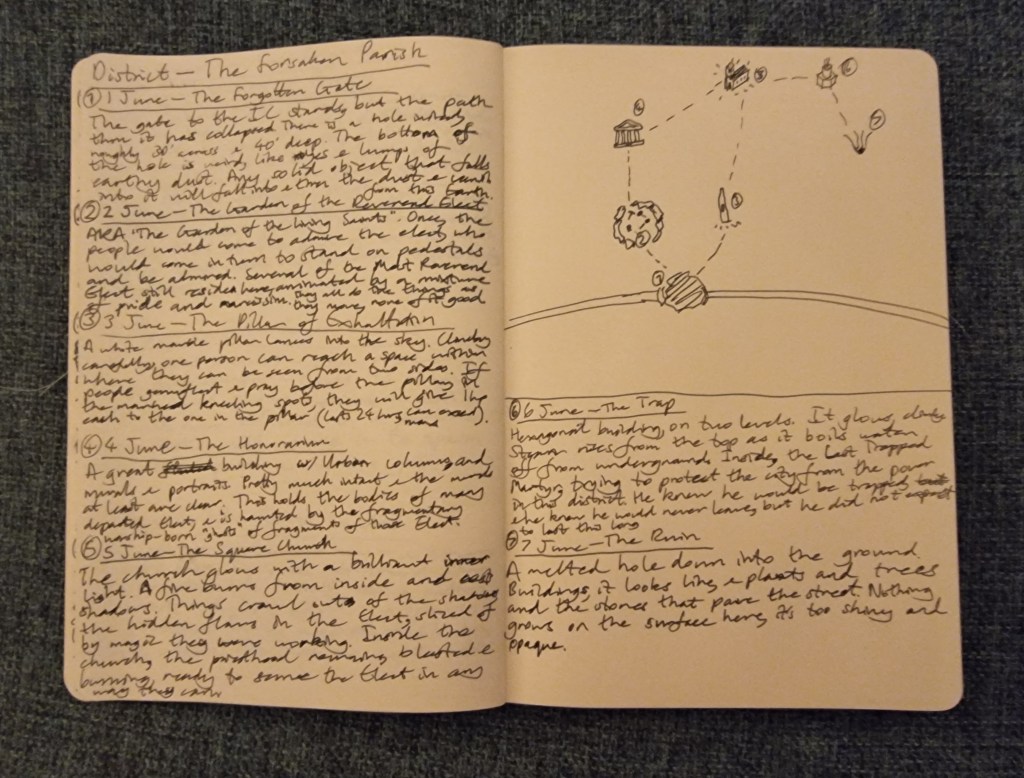 District — The Forsaken Parish
① 1 June — The Forgotten Gate
The gate to the stands, but the path
thru it has collapsed. There is a hole
roughly 30' across & 40' deep. The bottom of
the hole is like & lumps of
earthy dust. Any solid object that falls
into it will fall into & thru the dust & vanish
from this Earth.
② 2 June — The Garden of the Reverend Elect
AKA "The Garden of the Living Saints". Once, the
people would come to admire the elect, who
would come in turn to stand on pedestals
and be admired. Several of the Most Reverend
Elect still reside here, animated by a mixture
of pride and narcissism. They all do the things as
they may, none of it good
③ 3 June — The Pillar of Exhaltation
A white marble pillar lances into the sky. Climbing
carefully, one person can reach a space within
where they can be seen from two sides. If
people & pray before the pillar, at
the marked kneeling spots, they will give 1 HP
each to the one in the pillar (lasts 24 hrs, can exceed
max).
④ 4 June — The Honorarium
A great building w/ columns, and
murals & portraits. Pretty much intact & the murals
at least are clear. This holds the bodies of many
departed Elect, & is haunted by the fragmentary
worship-born "ghosts" of fragments of those Elect.
⑤ 5 June — The Square Church
The church glows with a brilliant inner
light. A fire burns from inside and casts
shadows. Things crawl out of the shadows,
the hidden flaws in the Elect, sliced off
by magic they were working. Inside the
church, the priesthood remains, blasted &
burning, ready to serve the Elect in any
way they can.
④
⑤
⑥
⑦
③
②
①
⑥ 6 June — The Trap
Hexagonal building, on two levels. It glows,
Steam rises from the top as it boils water
off from underground. Inside, the Last Trapped
Martyr, trying to protect the city from the power
in this district. He knew he would be trapped
& he knew he would never leave, but he did not expect
to last this long
⑦ 7 June — The Ruin
A melted hole down into the ground.
Buildings, it looks like, & plants and trees
and the stones that pave the street. Nothing
grows on the surface here, its too shiny and
opaque.